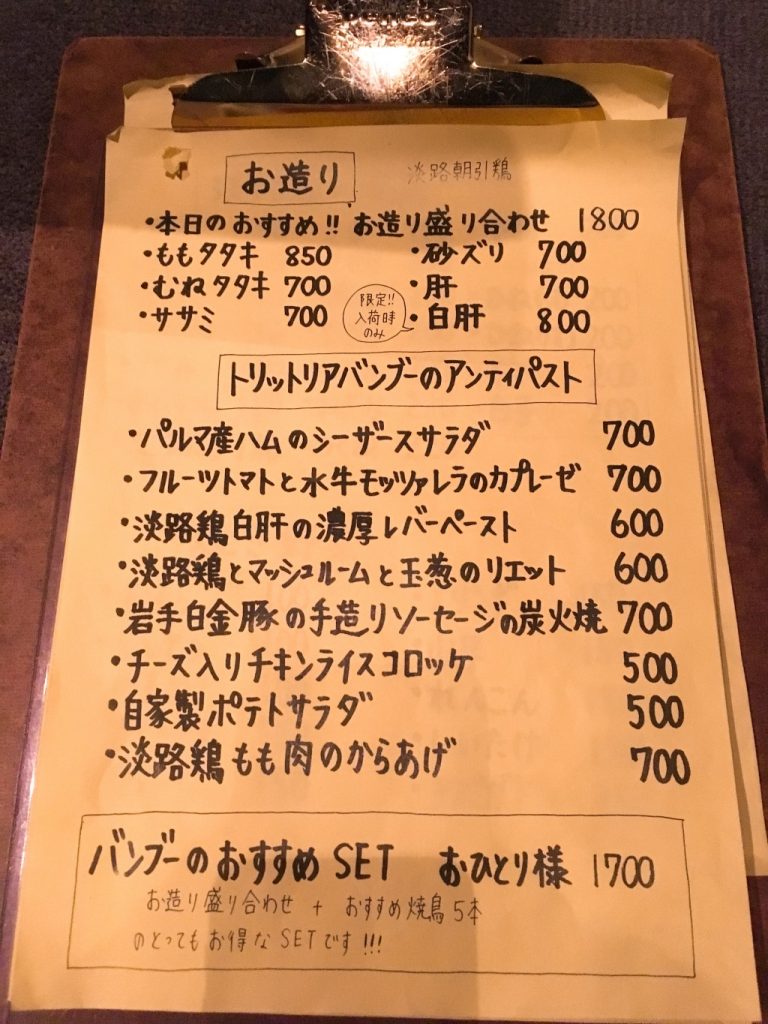 お造り 淡路朝引鶏
・本日のおすすめ!! お造り盛り合わせ 1800
・ももタタキ 850 ・砂ズリ 700
・むねタタキ 700 ・肝 700
・ササミ 700 ・白肝 800
限定!!
入荷時
のみ
トリットリアバンブーのアンティパスト
・パルマ産ハムのシーザースサラダ 700
・フルーツトマトと水牛モッツァレラのカプレーゼ 700
・淡路鶏白肝の濃厚レバーペースト 600
・淡路鶏とマッシュルームと玉葱のリエット 600
・岩手白金豚の手造りソーセージの炭火焼 700
・チーズ入りチキンライスコロッケ 500
・自家製ポテトサラダ 500
・淡路鶏もも肉のからあげ 700
バンブーのおすすめSET おひとり様 1700
お造り盛り合わせ + おすすめ焼鳥5本
のとってもお得なSETです!!!